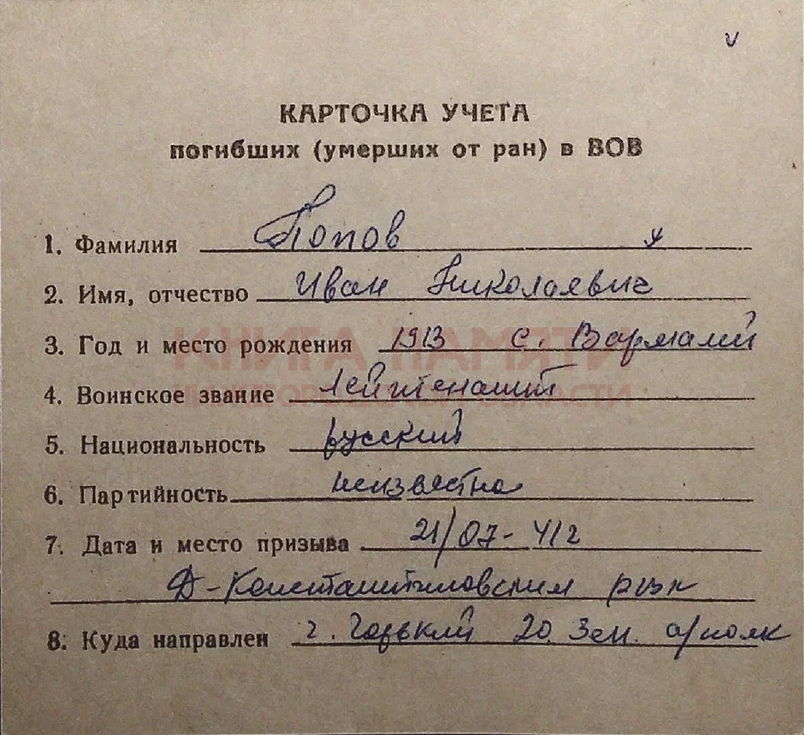 КАРТОЧКА УЧЕТА
погибших (умерших от ран) в ВОВ
1. Фамилия Попов
2. Имя, отчество Иван Николаевич
3. Год и место рождения 1913 с. Вармалей
4. Воинское звание Лейтенант
5. Национальность русский
6. Партийность неизвестна
7. Дата и место призыва 21/07-41г
Д-Константиновским рвк
8. Куда направлен г. Горький 20. Зен. а/полк
КНИГА ПАМЯТИ
НИЖЕГОРОДСКОЙ ОБЛАСТИ